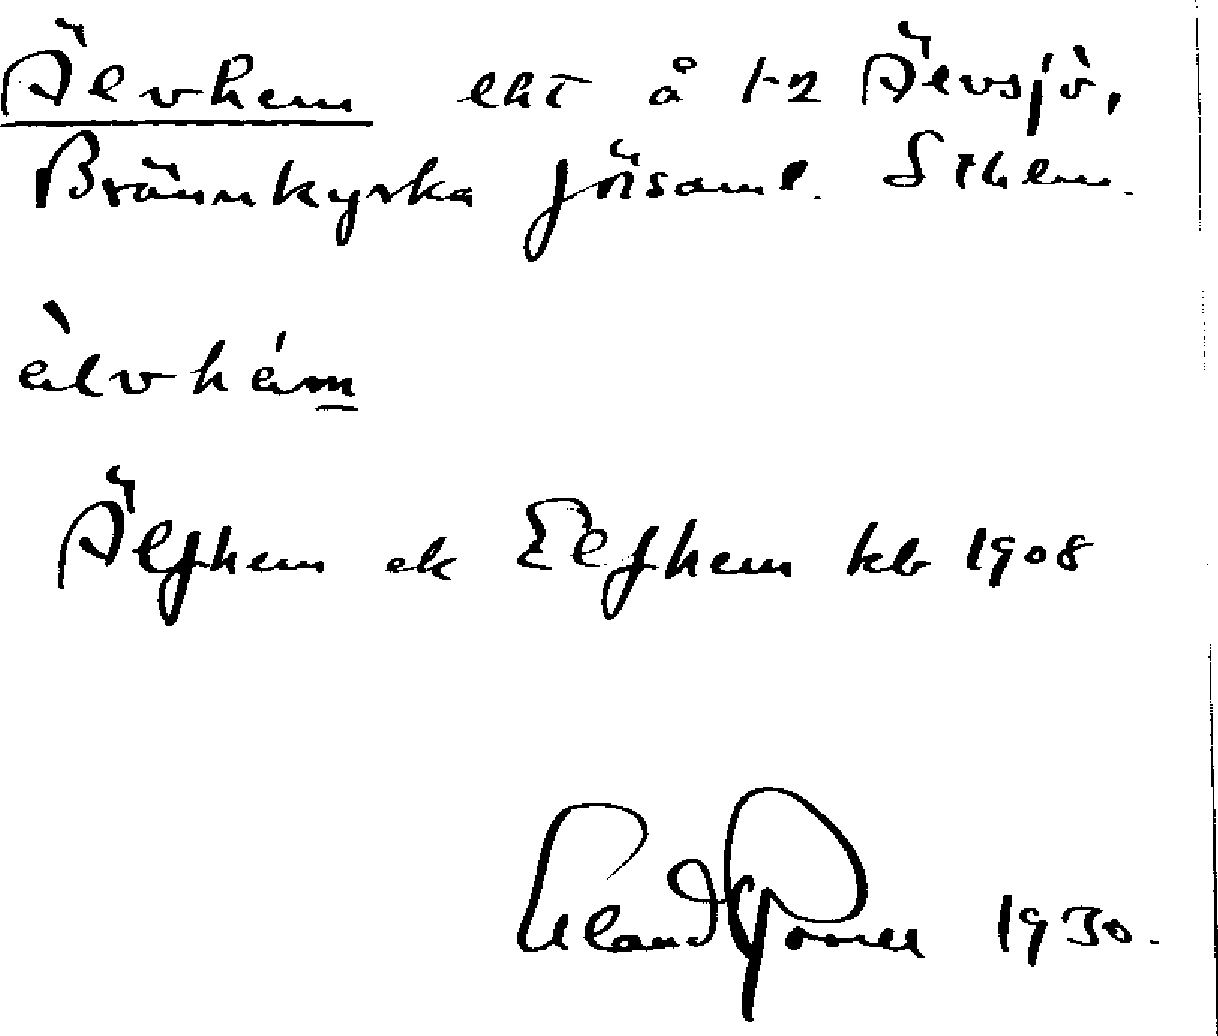 Älvhem lht å 1-2 Älvsjö,
Brännkyrka församl. Sthlm.
àlvhé̀m
Älfhem ok Elfhem kb 1908
1930.